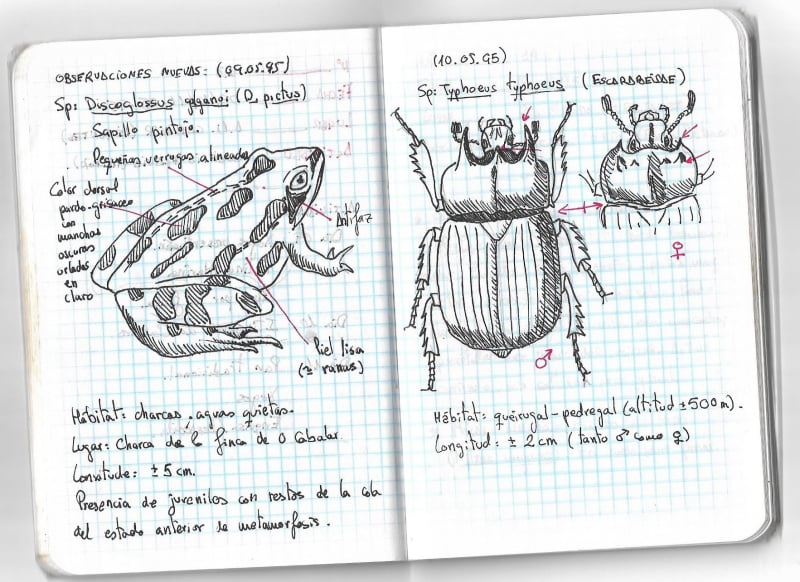 OBSERVACIONES NUEVAS: (09.05.95)
Sp: Discoglossus galganoi (D. pictus)
Sapillo pintojo.
Pequeñas verrugas alineadas
Color dorsal
pardo-grisáceo
con
manchas
oscuras
orladas
en
claro
Antifaz
Piel lisa
(≃ ranas)
Hábitat: charcas, aguas quietas.
Lugar: Charca de la finca de O Cabalar.
Longitude: ± 5 cm.
Presencia de juveniles con restos de la cola
del estado anterior la metamorfosis.
(10.05.95)
Sp: Typhoeus typhoeus (ESCARABEIDAE)
♀
♂
Hábitat: queirugal-pedregal (altitud ± 500 m).
Longitud: ± 2 cm (tanto ♂ como ♀)